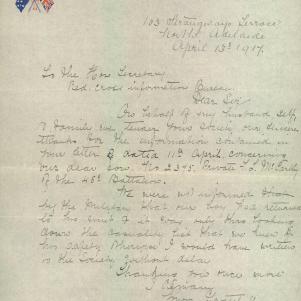 103 Strangways Terrace
North Adelaide
April 13th 1917.
To the Hon Secretary
Red Cross Information Bureau
Dear Sir
On behalf of my husband self
& Family we tender your Society our sincere
thanks for the information contained in
your letter of 11th April concerning
our dear son No 2395 Private
of the 48th Battalion.
We were not informed
by the Military that our boy had returned
to his unit & it was only this looking
down the casualty list that we knew of
his safety otherwise I would have written
to the Society without delay
Thanking you once more
I remain